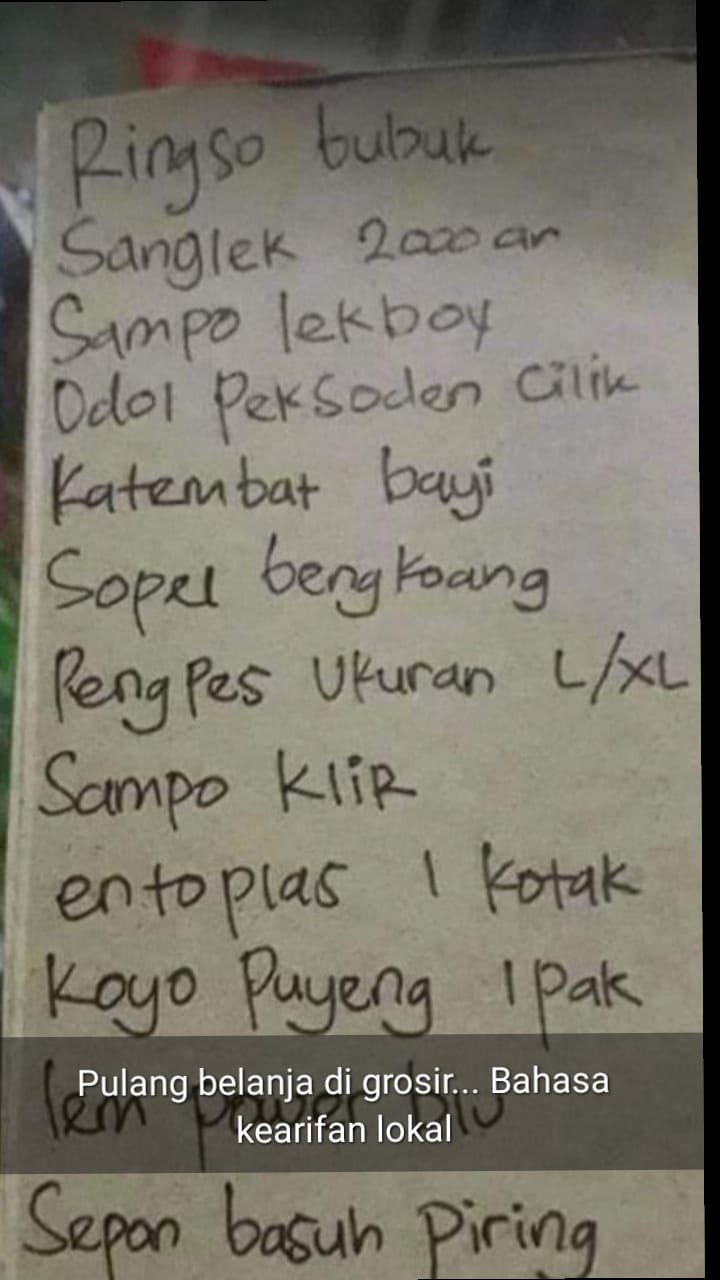 Ringso bubuk
Sanglek 2000 an
Sampo lekboy
Odol Peksoden cilik
Katembat bayi
Sopel bengkoang
PengPes Ukuran L/XL
Sampo KliR
entoplas 1 kotak
Koyo Puyeng 1 pak
Pulang belanja di grosir... Bahasa
kearifan lokal
lem power blu
Sepon basuh Piring